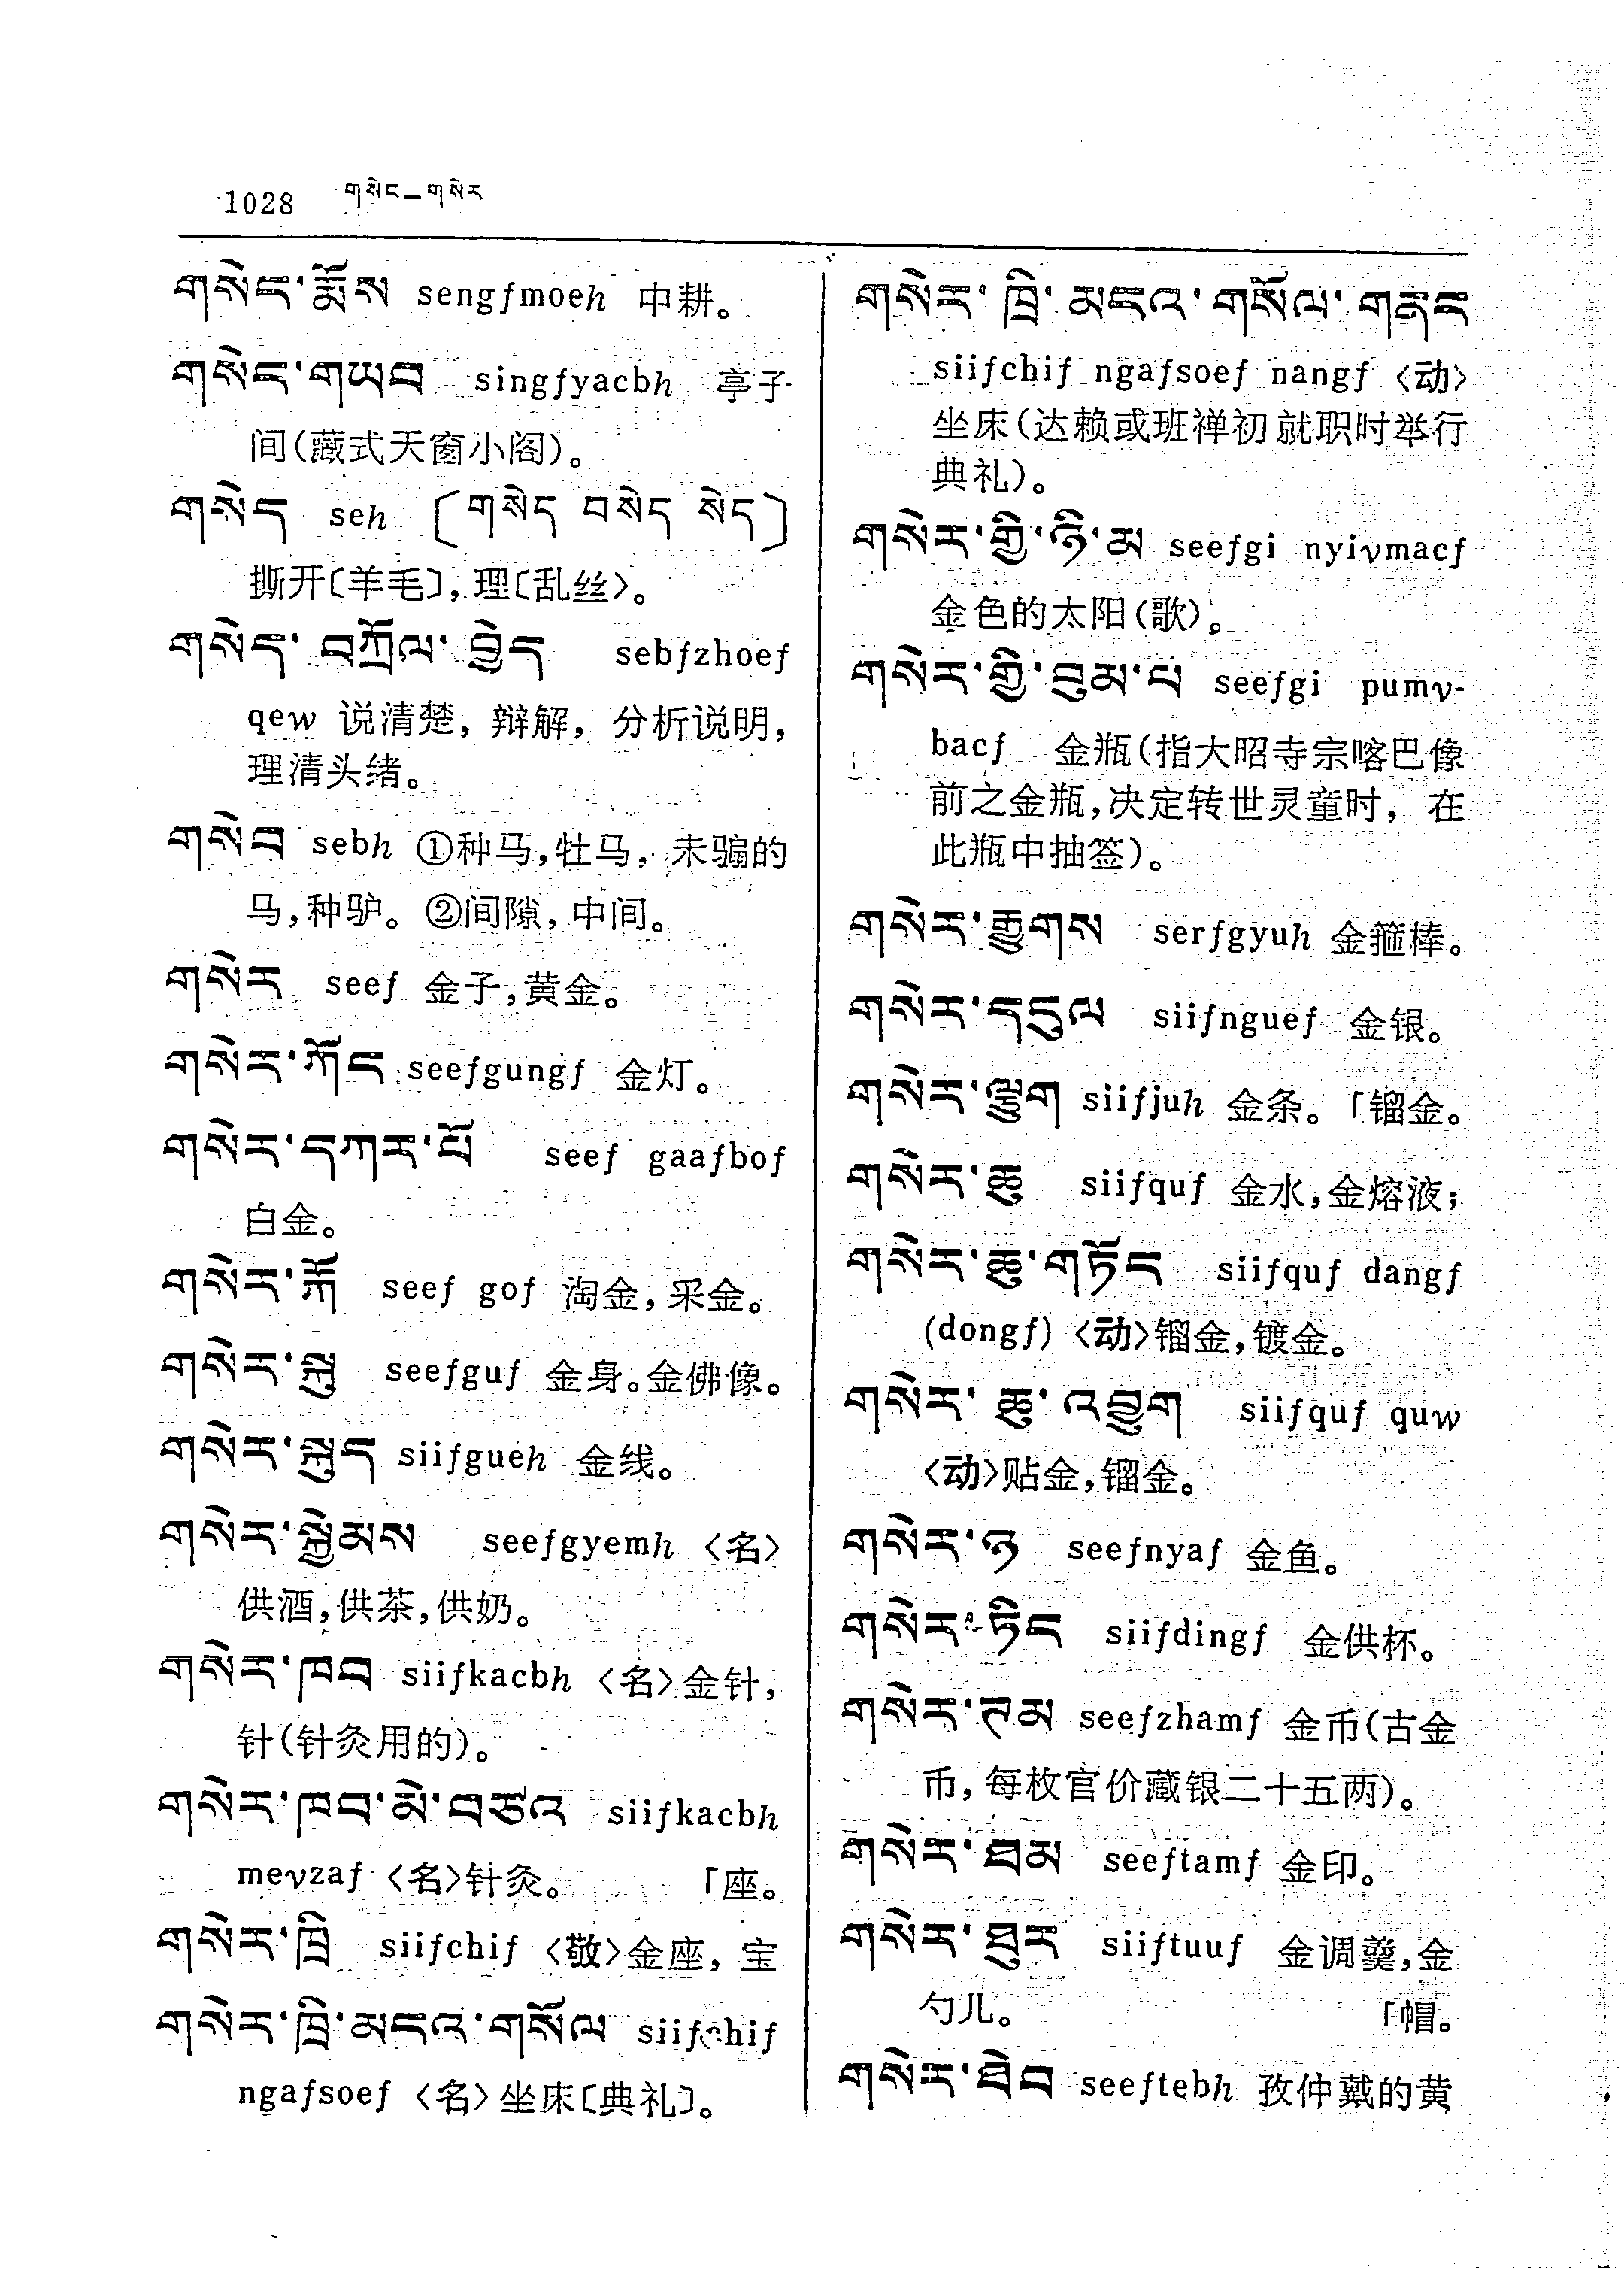 1028 གསེང–གསེར
གསེང་རྨོས sengfmoeh 中耕。
གསེང་གཡབ singfyacbh 亭子
间(藏式天窗小阁)。
གསེད seh 〔གསེད བསེད སེད〕
撕开〔羊毛〕,理〔乱丝〉。
གསེད་བཀྲོལ་བྱེད sebfzhoef
qew 说清楚, 辩解, 分析说明,
理清头绪。
གསེབ sebh ①种马,牡马, 未骟的
马,种驴。②间隙, 中间。
གསེར seef 金子,黄金。
གསེར་ཀོང seefgungf 金灯。
གསེར་དཀར་པོ seef gaafbof
白金。
གསེར་རྐོ seef gof 淘金, 采金。
གསེར་སྐུ seefguf 金身。金佛像。
གསེར་སྐུད siifgueh 金线。
གསེར་སྐྱེམས seefgyemh 〈名〉
供酒,供茶,供奶。
གསེར་ཁབ siifkacbh 〈名〉金针,
针(针灸用的)。
གསེར་ཁབ་མེ་བཙའ siifkacbh
mevzaf 〈名〉针灸。 「座。
གསེར་ཁྲི siifchif 〈敬〉金座, 宝
གསེར་ཁྲི་མངའ་གསོལ siifchif
ngafsoef 〈名〉坐床〔典礼〕。
གསེར་ཁྲི་མངའ་གསོལ་གནང
siifchif ngafsoef nangf 〈动〉
坐床(达赖或班禅初就职时举行
典礼)。
གསེར་གྱི་ཉི་མ seefgi nyivmacf
金色的太阳(歌)。
གསེར་གྱི་བུམ་པ seefgi pumv-
bacf 金瓶(指大昭寺宗喀巴像
前之金瓶,决定转世灵童时, 在
此瓶中抽签)。
གསེར་རྒྱུགས serfgyuh 金箍棒。
གསེར་དངུལ siifnguef 金银。
གསེར་ལྕུག siifjuh 金条。「镏金。
གསེར་ཆུ siifquf 金水,金熔液;
གསེར་ཆུ་གཏོང siifquf dangf
(dongf) 〈动〉镏金,镀金。
གསེར་ཆུ་འབྱུག siifquf quw
〈动〉贴金,镏金。
གསེར་ཉ seefnyaf 金鱼。
གསེར་ཏིང siifdingf 金供杯。
གསེར་ཊམ seefzhamf 金币(古金
币, 每枚官价藏银二十五两)。
གསེར་ཐམ seeftamf 金印。
གསེར་ཐུར siiftuuf 金调羹,金
勺儿。 「帽。
གསེར་ཐེབ seeftebh 孜仲戴的黄